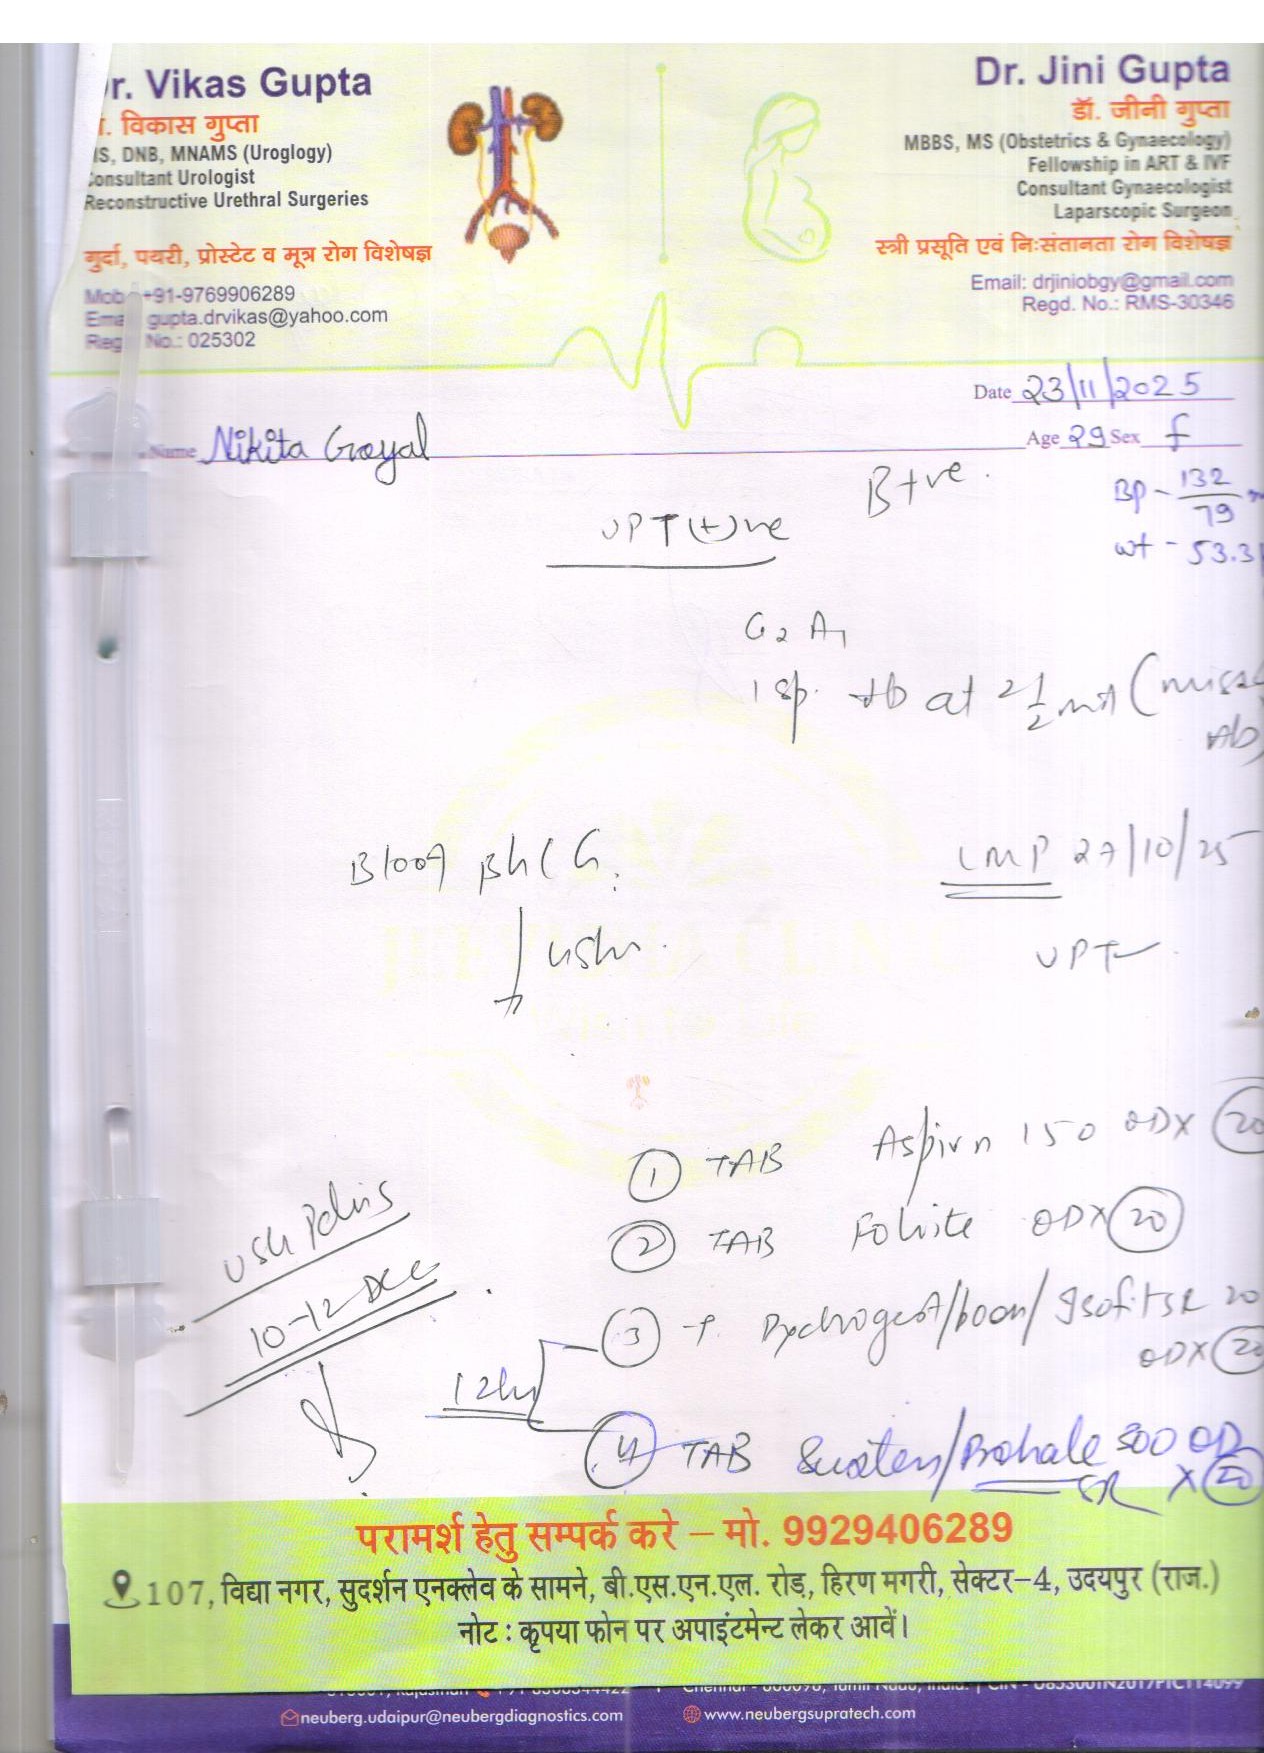 r. Vikas Gupta
. विकास गुप्ता
IS, DNB, MNAMS (Uroglogy)
Consultant Urologist
Reconstructive Urethral Surgeries
गुर्दा, पथरी, प्रोस्टेट व मूत्र रोग विशेषज्ञ
Mob +91-9769906289
Ema gupta.drvikas@yahoo.com
Reg No.: 025302
Dr. Jini Gupta
डॉ. जीनी गुप्ता
MBBS, MS (Obstetrics & Gynaecology)
Fellowship in ART & IVF
Consultant Gynaecologist
Laparscopic Surgeon
स्त्री प्रसूति एवं निःसंतानता रोग विशेषज्ञ
Email: drjiniobgy@gmail.com
Regd. No.: RMS-30346
Date 23/11/2025
Name Nikita Goyal Age 29 Sex f
B+ve.
BP - 132/79
UPT (+)ve
wt - 53.3
G2 A1
1 sp. Ab at 2 1/2 mth (missed
Ab)
Blood βhCG.
LMP 27/10/25
UPT
① TAB Aspirin 150 ODX 20
② TAB Folvite ODX 20
USG Pelvis
10-12 Dec
③ T. Dydrogest/boon/ 20
ODX 20
12hr
④ TAB Susten/ 300 OD
SR X 20
परामर्श हेतु सम्पर्क करे – मो. 9929406289
107, विद्या नगर, सुदर्शन एनक्लेव के सामने, बी.एस.एन.एल. रोड, हिरण मगरी, सेक्टर-4, उदयपुर (राज.)
नोट : कृपया फोन पर अपाइंटमेन्ट लेकर आवें।
neuberg.udaipur@neubergdiagnostics.com www.neubergsupratech.com